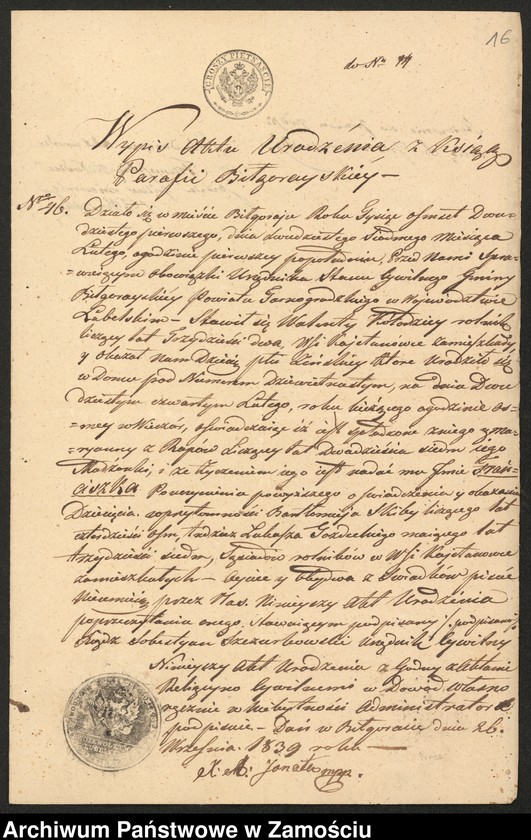 16
do Nr 14
GROSZY PIĘTNAŚCIE
Wypis Aktu Urodzenia z Księgi
Parafii Biłgorayskiéy —
Nro 46. Działo się w mieście Biłgoraju Roku Tysiąc ośmset Dwu-
dziestego pierwszego, dnia dwudziestego siodmego Miesiąca
Lutego, o godzinie pierwszey popołudniu, Przed Nami Spra-
=wuiącym obowiązki Urzędnika Stanu Cywilnego Gminy
Biłgorayskiey Powiatu Tarnogrodzkiego w Wojewodztwie
Lubelskim — Stawił się Walenty Kołodziey rolnik
liczący lat Trzydzieści dwa, w Wsi Kajetanowce zamieszkały
y okazał nam Dziecię płci Żeńskiey które urodziło się
w Domu pod Numerem dziewietnastym, na dniu Dwu
dziestym czwartym Lutego, roku bieżącego o godzinie os-
=mey w Wieczor, oświadczaiąc iż iest spłodzone z niego y Ma-
=ryanny z Rapów liczącey lat dwadzieścia siedm iego
Małżonki, i że życzeniem iego iest nadać mu Imie Fran-
ciszka Po uczynieniu powyższego oświadczenia y okazaniu
Dziecięcia w przytomności Bartłomieja Skiby liczącego lat
czterdzieści ośm, tudzież Łukasza Gozdeckiego maiącego lat
trzydzieści siedm, Sąsiadów rolników w Wsi Kajetanowce
zamieszkałych — Oyciec y obydwa z Świadków pisać
nieumieią przez Nas. Ninieyszy Akt Urodzenia
po przeczytaniu onego Stawaiącym podpisany /. podpisano
Xiądz Sobestyan Szczurbowski Urzędnik Cywilny
Ninieyszy Akt Urodzenia zgodny z Aktami
Religiyno Cywilnemi w Dowód własno
ręcznie w niebytności Administratora
podpisuie — Dan w Biłgoraiu dnia 26.
Września 1839 roku —
X. A. mpp.
Archiwum Państwowe w Zamościu